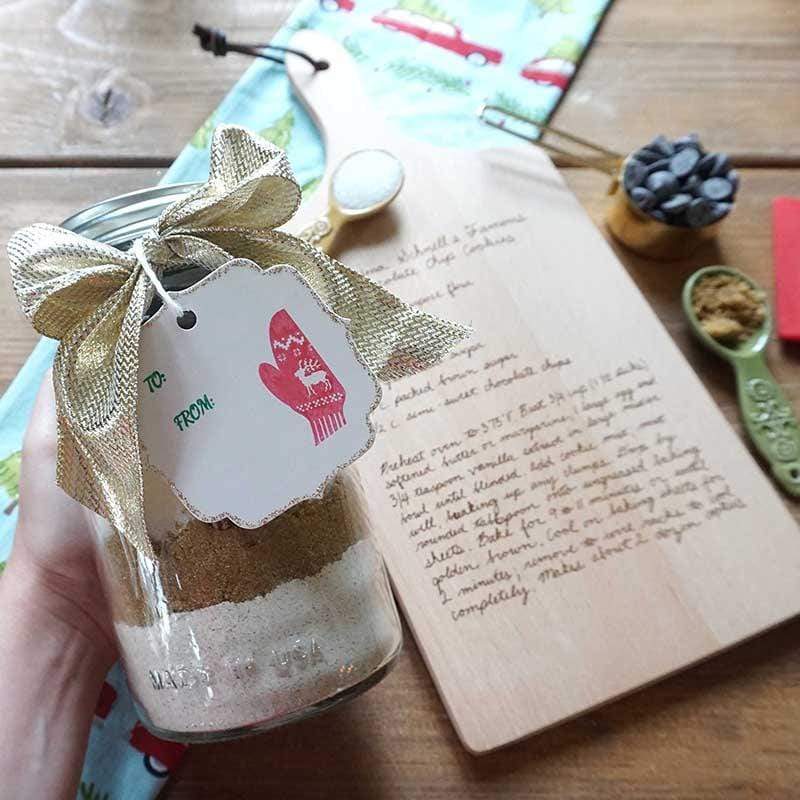 TO:
FROM:
MADE IN USA
Schnell's Famous
Chip Cookies
sugar
c packed brown sugar
2 c semi sweet chocolate chips
Preheat oven to 375°F. Beat 3/4 cup (1 1/2 sticks)
softened butter or margarine, 1 large egg and
3/4 teaspoon vanilla extract in large mixer
bowl until blended. Add cookie mix, mix
well, breaking up any clumps. Drop by
rounded tablespoon onto ungreased baking
sheets. Bake for 9 to 11 minutes or until
golden brown. Cool on baking sheets for
2 minutes, remove to wire racks to cool
completely. Makes about 2 dozen cookies